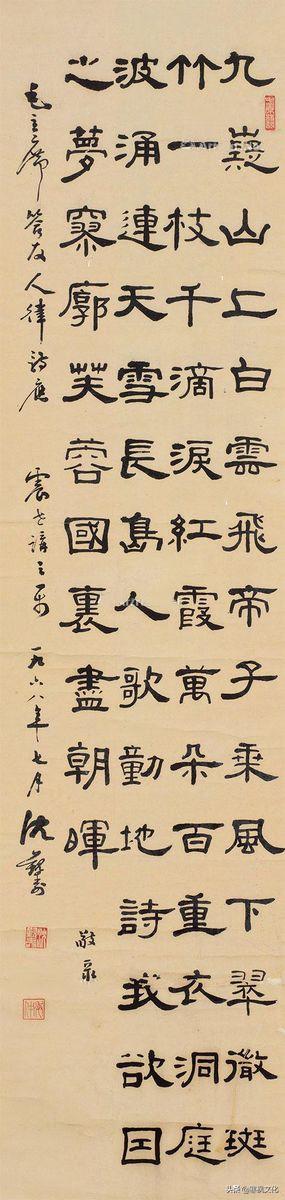 九嶷山上白雲飛帝子乘風下翠微斑
竹一枝千滴淚紅霞萬朵百重衣洞庭
波涌連天雪長島人歌動地詩我欲囙
之夢寥廓芙蓉國裏盡朝暉
敬录
毛主席答友人律诗應 震 之 一九六八年七月 沈
头条 文化